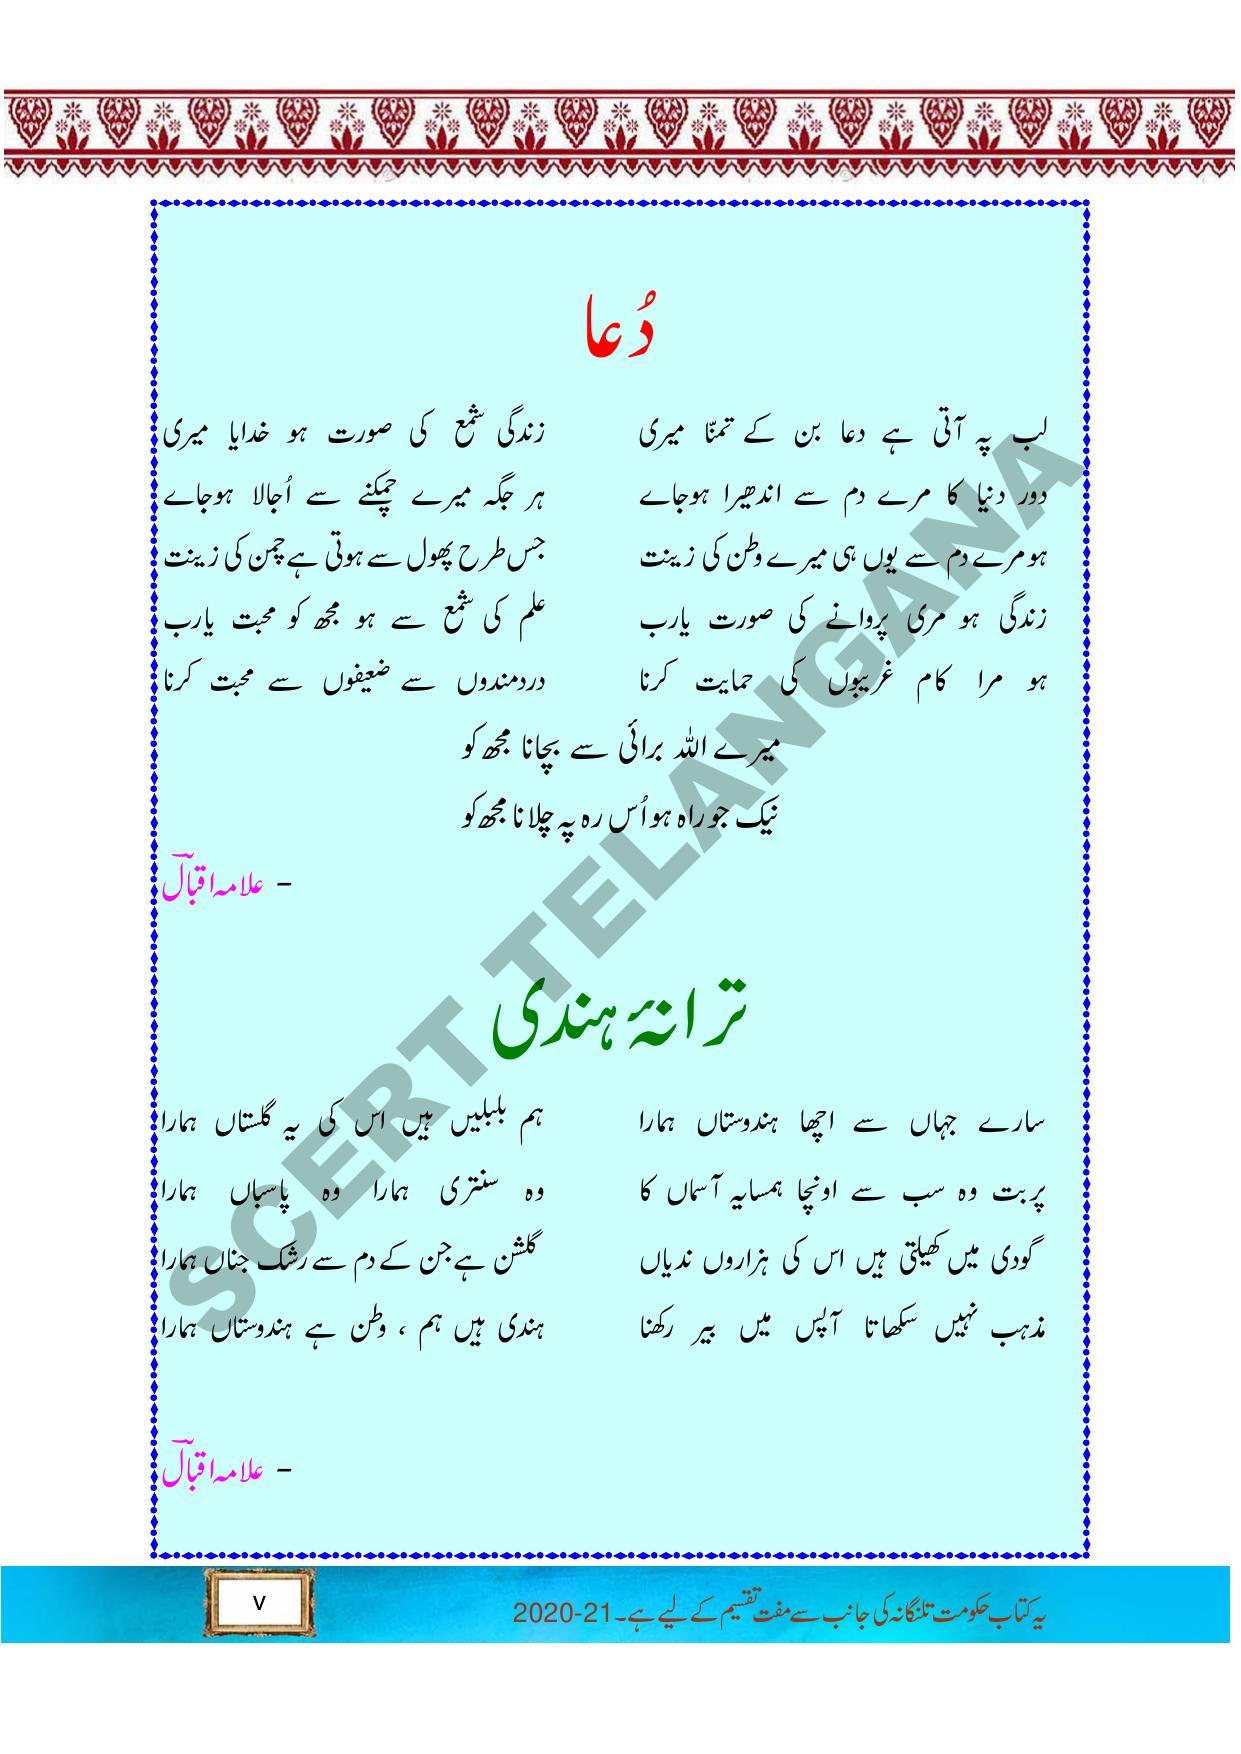 دُعا
لب پہ آتی ہے دعا بن کے تمنّا میری زندگی شمع کی صورت ہو خدایا میری
دور دنیا کا مرے دم سے اندھیرا ہوجاے ہر جگہ میرے چمکنے سے اُجالا ہوجاے
ہو مرے دم سے یوں ہی میرے وطن کی زینت جس طرح پھول سے ہوتی ہے چمن کی زینت
زندگی ہو مری پروانے کی صورت یارب علم کی شمع سے ہو مجھ کو محبت یارب
ہو مرا کام غریبوں کی حمایت کرنا دردمندوں سے ضعیفوں سے محبت کرنا
میرے اللہ برائی سے بچانا مجھ کو
نیک جو راہ ہو اُس رہ پہ چلانا مجھ کو
- علامہ اقبالؔ
ترانۂ ہندی
سارے جہاں سے اچھا ہندوستاں ہمارا ہم بلبلیں ہیں اس کی یہ گلستاں ہمارا
پربت وہ سب سے اونچا ہمسایہ آسماں کا وہ سنتری ہمارا وہ پاسباں ہمارا
گودی میں کھیلتی ہیں اس کی ہزاروں ندیاں گلشن ہے جن کے دم سے رشک جناں ہمارا
مذہب نہیں سکھاتا آپس میں بیر رکھنا ہندی ہیں ہم ، وطن ہے ہندوستاں ہمارا
- علامہ اقبالؔ
SCERT TELANGANA
یہ کتاب حکومت تلنگانہ کی جانب سے مفت تقسیم کے لیے ہے۔ 2020-21
v